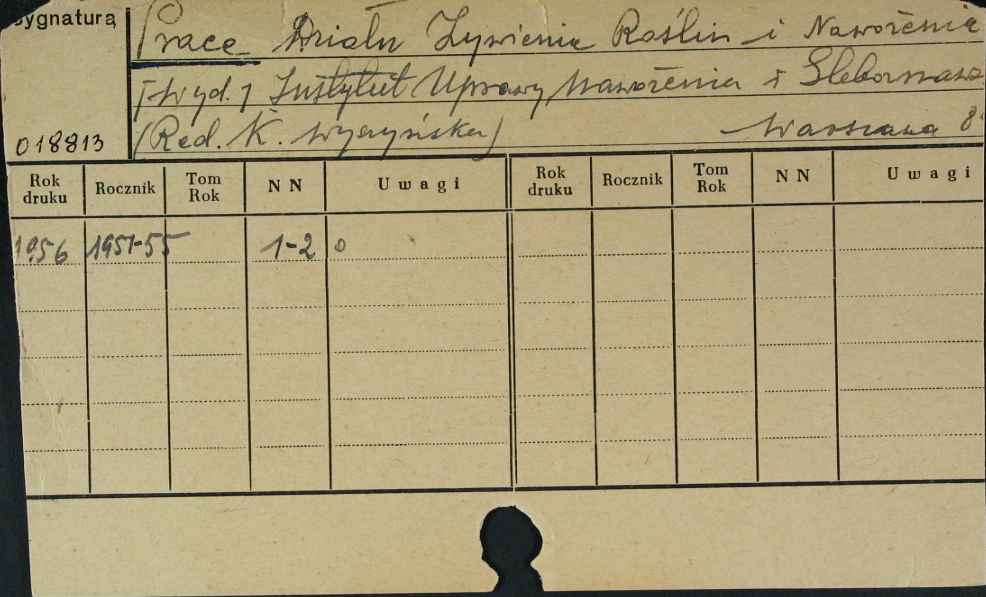 Sygnatura
018813
Prace Działu Żywienia Roślin i Nawożenia
[Wyd.] Instytut Uprawy Nawożenia i Gleboznaw
(Red. K. Wyczyńska) Warszawa 8°
Rok druku Rocznik Tom Rok NN Uwagi Rok druku Rocznik Tom Rok NN Uwagi
1956 1951-55 1-2 o